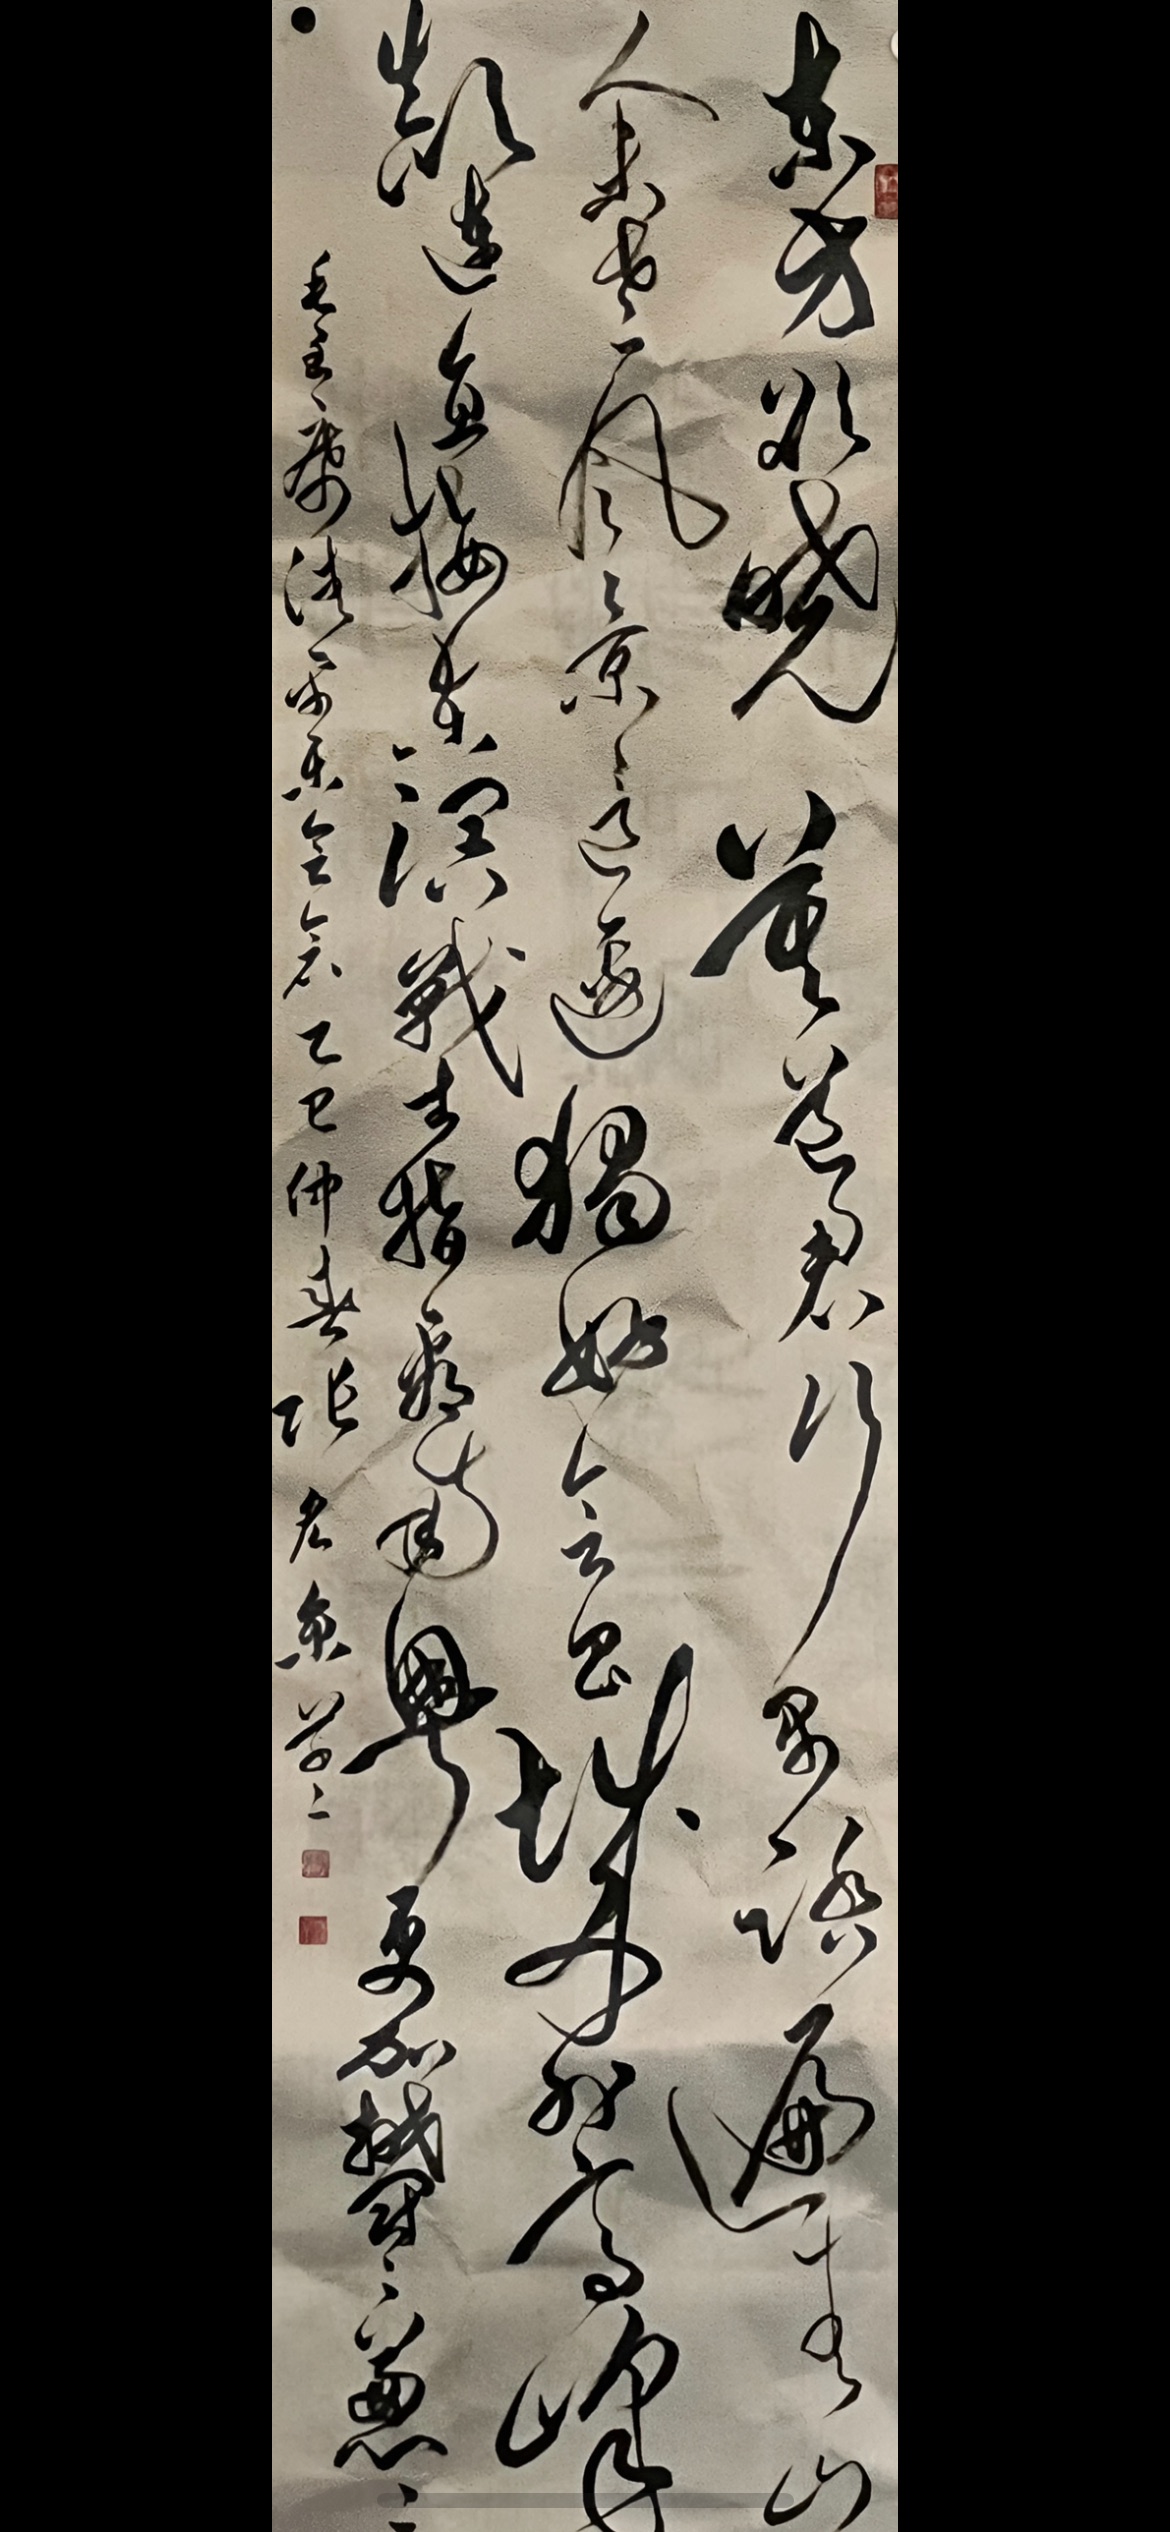 東方欲曉莫道君行早踏遍青山
人未老風景這邊獨好會昌城外高峰
顛連直接東溟戰士指看南粵更加鬱鬱蔥蔥
毛主席詞清平樂會昌乙巳仲春張老